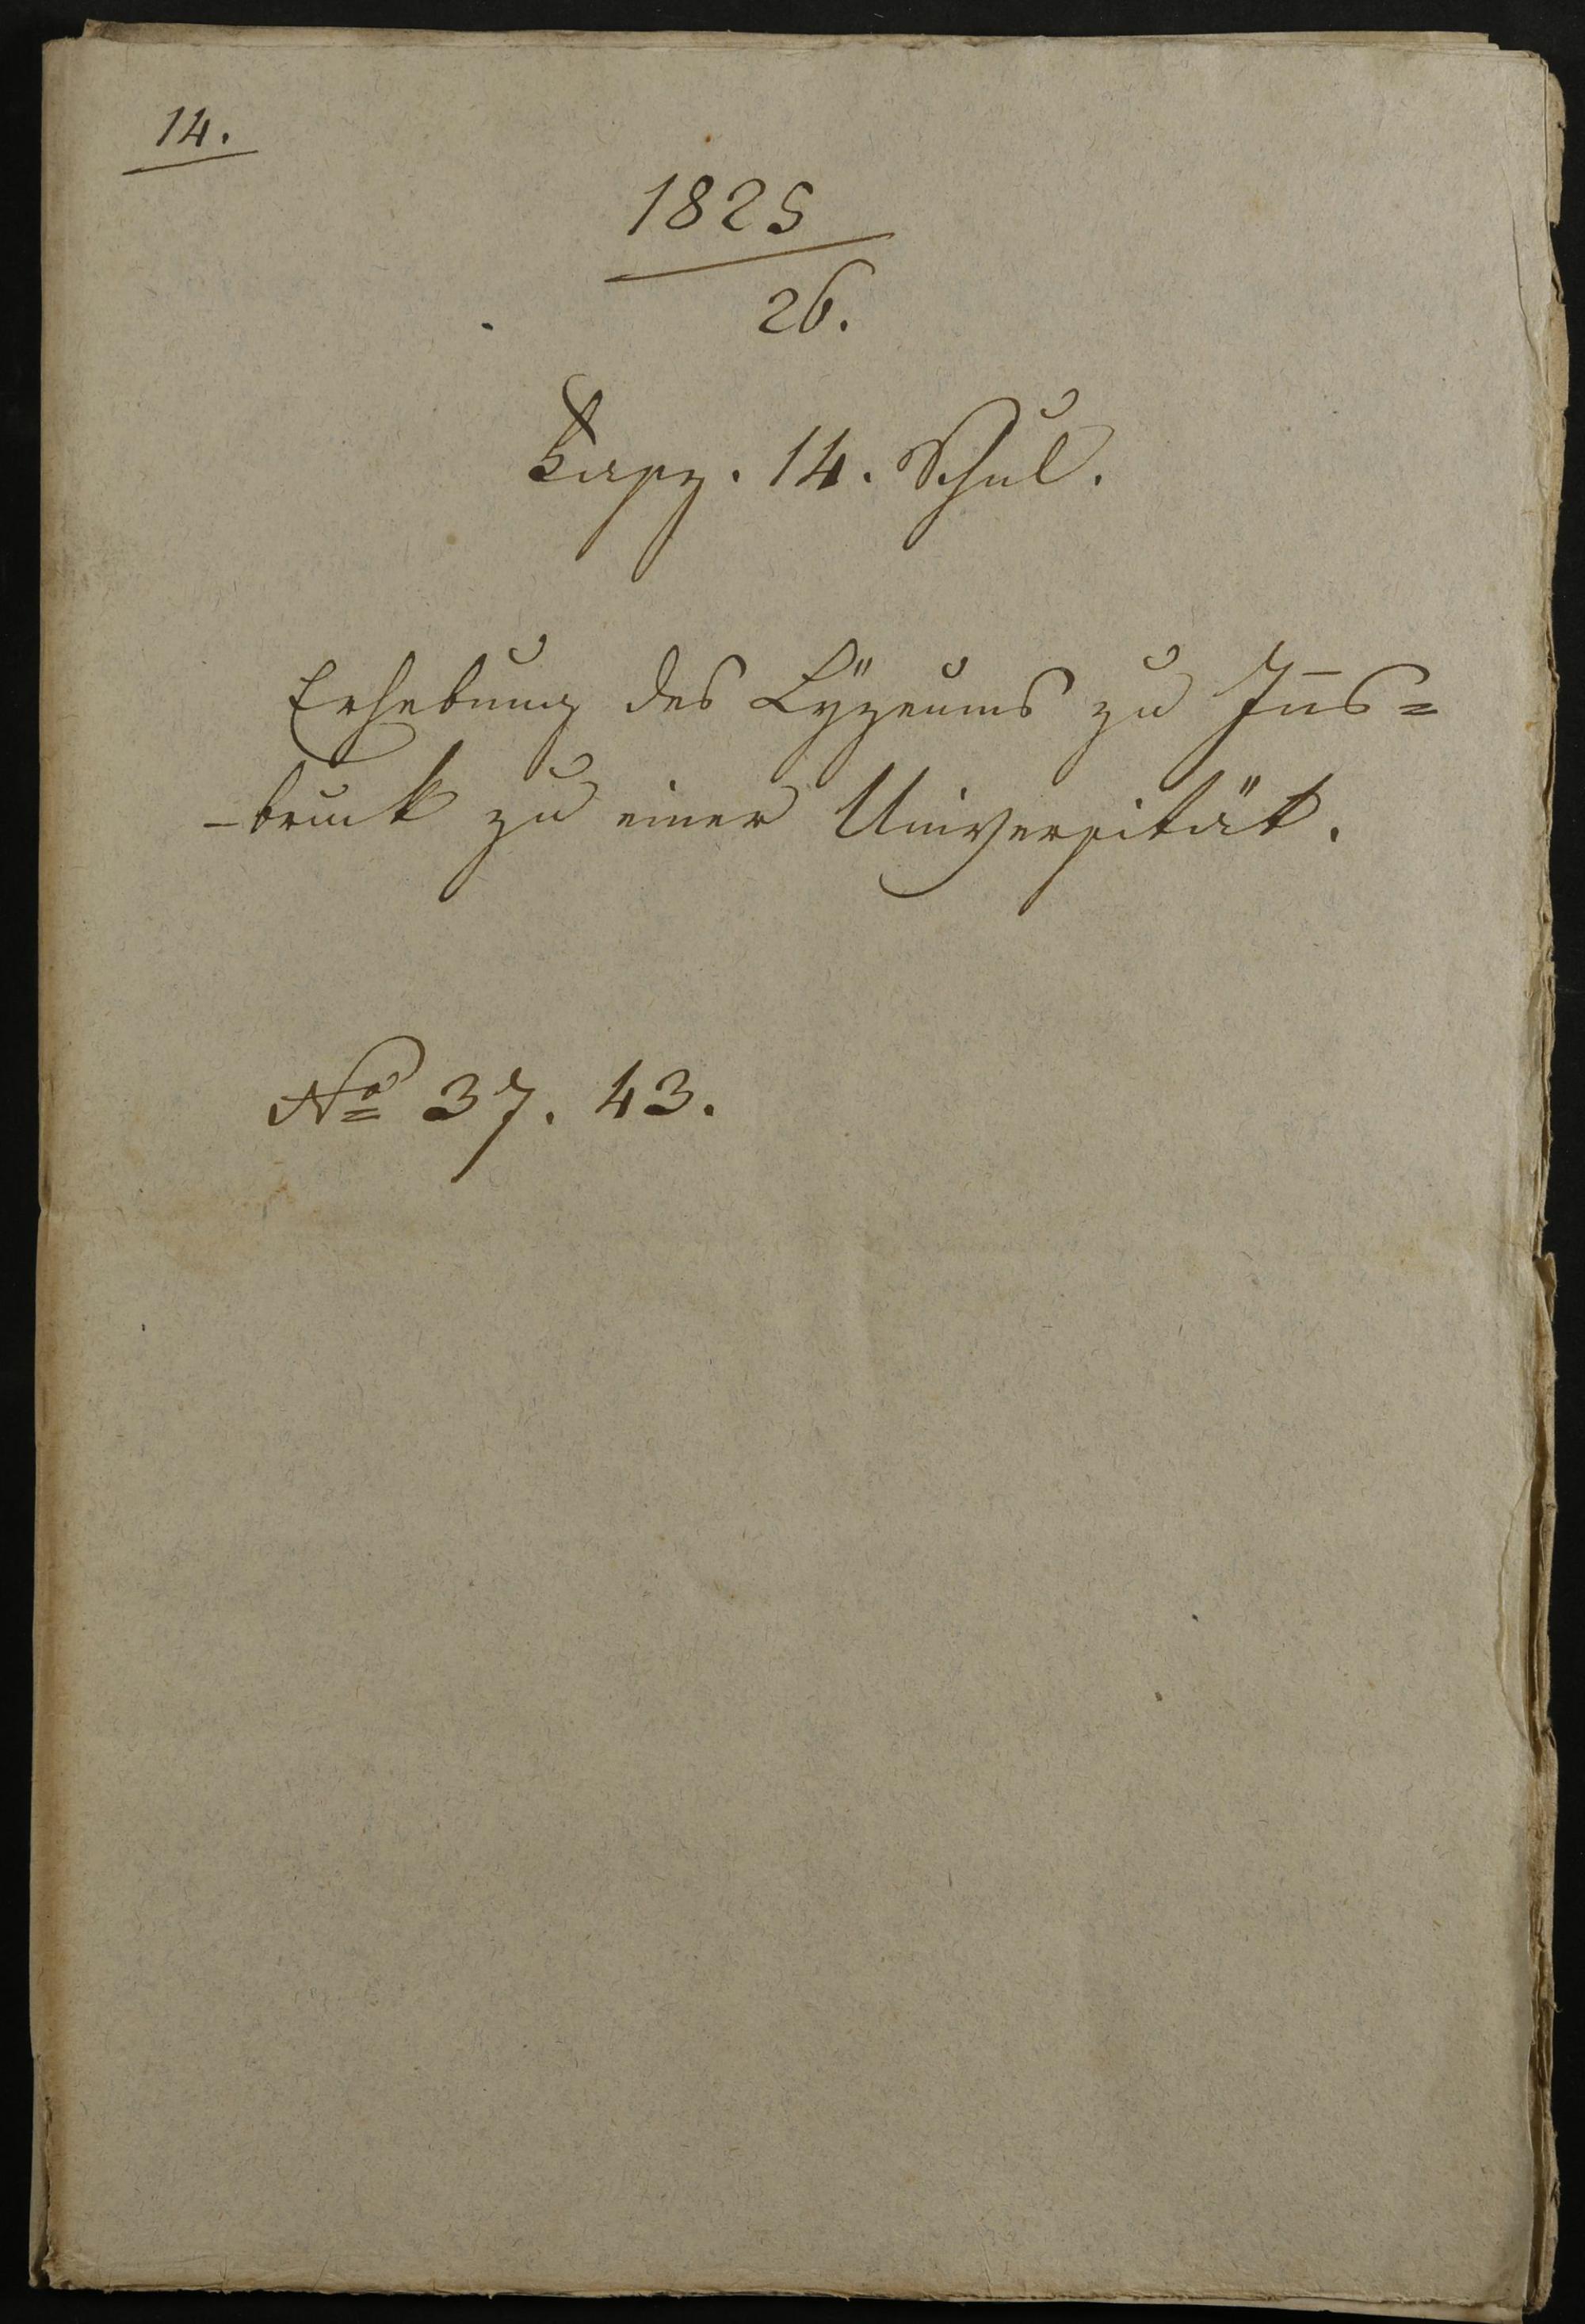 14.
1825
26.
Fasz. 14. Schul.
Erhebung des Lÿzeums zu In̅s=
-bruck zu einer Universität.
No 37. 43.